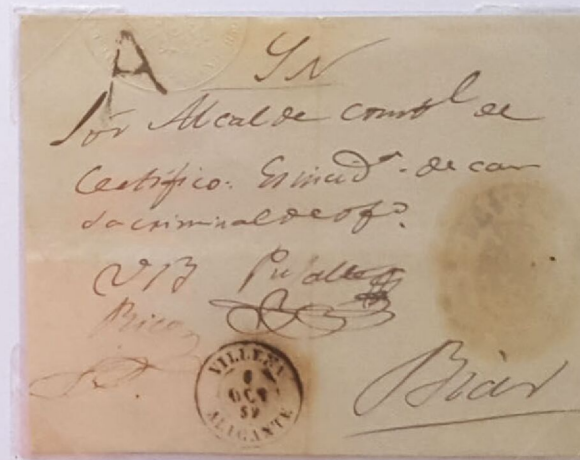 A SN
Sor Alcalde constl de
Certifico: Es incid.te de cau
sa criminal de ofo.
VB
Rico
VILLENA
OCT
ALICANTE
Biar